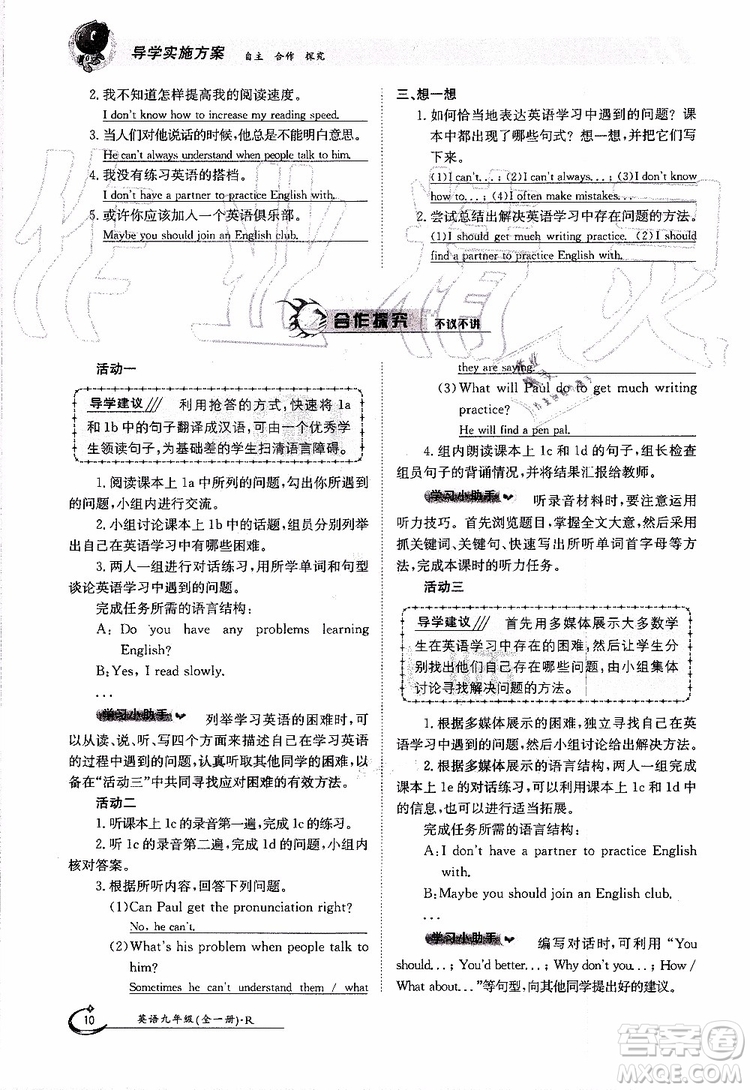 导学实施方案 自主 合作 探究
2. 我不知道怎样提高我的阅读速度。
I don't know how to increase my reading speed.
3. 当人们对他说话的时候,他总是不能明白意思。
He can't always understand when people talk to him.
4. 我没有练习英语的搭档。
I don't have a partner to practice English with.
5. 或许你应该加入一个英语俱乐部。
Maybe you should join an English club.
三、想一想
1. 如何恰当地表达英语学习中遇到的问题? 课
本中都出现了哪些句式? 想一想,并把它们写
下来。
(1)I can't...; (2)I can't always...; (3)I don't know
how to...; (4)I often make mistakes...
2. 尝试总结出解决英语学习中存在问题的方法。
(1)I should get much writing practice. (2)I should
find a partner to practice English with.
合作探究 不议不讲
活动一
导学建议 利用抢答的方式,快速将 1a
和 1b 中的句子翻译成汉语,可由一个优秀学
生领读句子,为基础差的学生扫清语言障碍。
1. 阅读课本上 1a 中所列的问题,针对所列
的问题,小组内进行交流。
2. 小组讨论课本上 1b 中的话题,组员分别列举
出自己在英语学习中有哪些困难。
3. 两人一组进行对话练习,用所学单词和句型
谈论英语学习中遇到的问题。
完成任务所需的语言结构:
A: Do you have any problems learning
English?
B: Yes, I read slowly.
...
学习小助手 列举学习英语的困难时,可
以从读、说、听、写四个方面讨论自己在学习英语
的过程中遇到的困难,并全部罗列在答题板上,以
备在“活动三”中共同寻找应对困难的有效方法。
活动二
1. 听课本上 1c 的录音第一遍,完成 1c 的任务。
2. 听 1c 的录音第二遍,完成 1d 的问题,小组内
核对答案。
3. 根据所听内容,回答下列问题。
(1)Can Paul get the pronunciation right?
No, he can't.
(2)What's his problem when people talk to
him?
Sometimes he can't understand them / what
they are saying.
(3)What will Paul do to get much writing
practice?
He will find a pen pal.
4. 组内朗读课本上 1c 和 1d 的句子,组长检查
组员句子的背诵情况,并将结果汇报给教师。
学习小助手 听录音材料时,要注意运用
听力技巧。首先浏览题目,掌握全文大意,然后采用
抓关键词、关键句、快速写出所听单词首字母等方
法,完成本课时的听力任务。
活动三
导学建议 首先用多媒体展示大多数学
生在英语学习中存在的困难,然后让学生分
别找出他们自己存在哪些问题,由小组集体
讨论寻找解决问题的方法。
1. 根据多媒体展示的困难,独立寻找自己在英
语学习中遇到的问题,然后小组讨论给出解决方法。
2. 根据多媒体展示的语言结构,两人一组完成
课本上 1e 的对话练习,可以利用课本上 1c 和 1d 中
的信息,也可以进行适当拓展。
完成任务所需的语言结构:
A: I don't have a partner to practice English
with.
B: Maybe you should join an English club.
...
学习小助手 编写对话时,可利用“You
should...; You'd better...; Why don't you...; How /
What about...”等句型,向其他同学提出好的建议。
10 英语九年级(全一册)·R
作业精灵